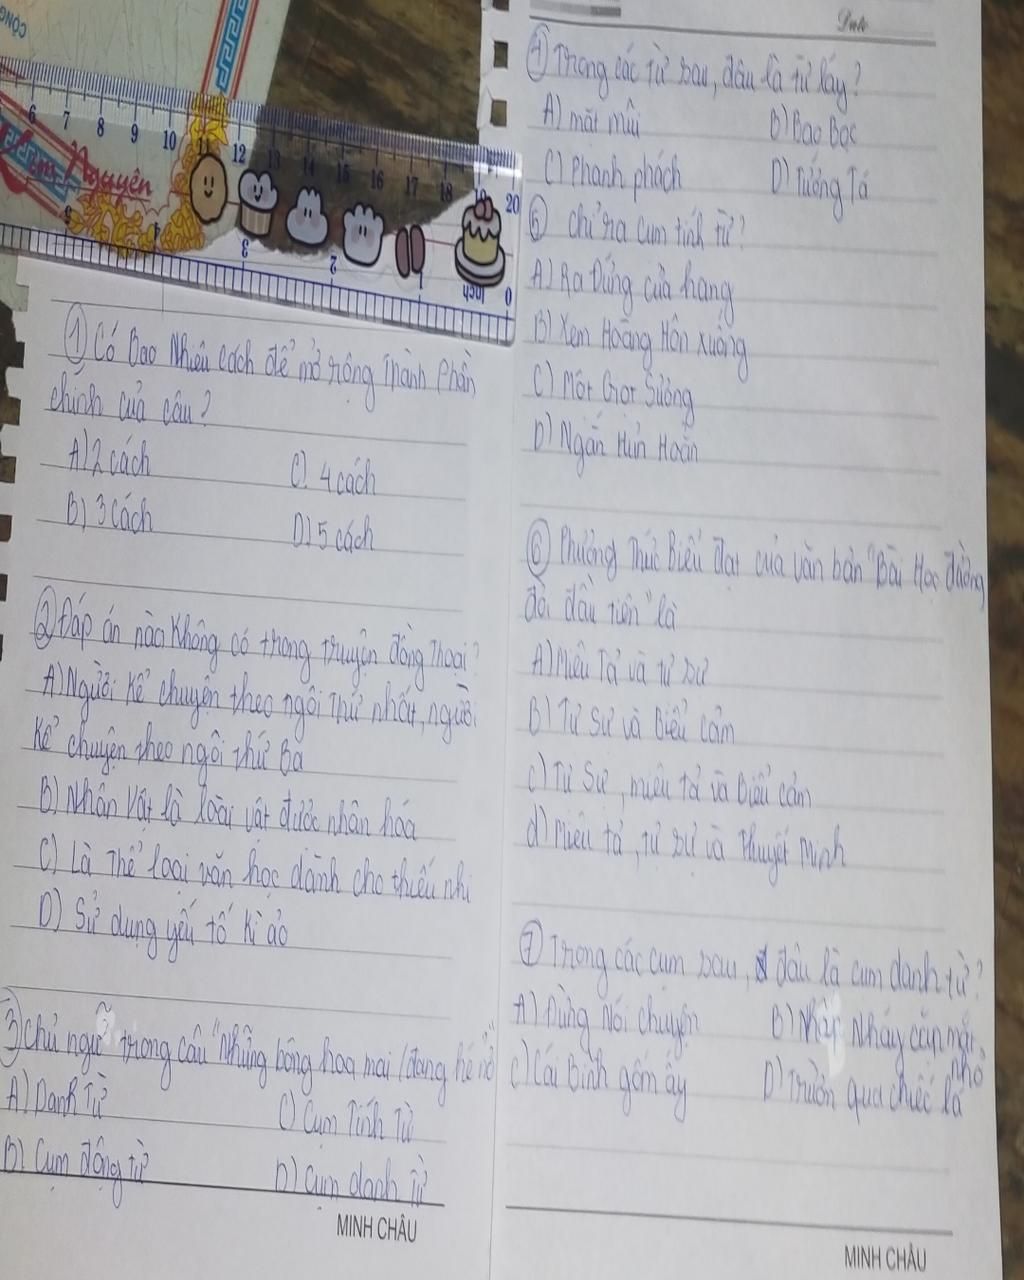 CỘNG
6 7 8 9 10 11 12 13 14 15 16 17 18 19 20
Kim Nguyên
5 4 3 2 1 0
inch
① Có Bao Nhiêu cách để mở rộng Thành Phần
chính của câu?
A) 2 cách C) 4 cách
B) 3 cách D) 5 cách
② Đáp án nào Không có trong truyện đồng Thoại?
A) Người Kể chuyện theo ngôi thứ nhất, người
Kể chuyện theo ngôi thứ Ba
B) Nhân Vật là loài vật được nhân hóa
C) Là Thể loại văn học dành cho thiếu nhi
D) Sử dụng yếu tố Kì ảo
③ Chủ ngữ trong câu "Những bông hoa mai / đang hé nở"
A) Danh Từ C) Cụm Tính Từ
B) Cụm động từ D) Cụm danh từ
MINH CHÂU
Date
④ Trong các từ sau, đâu là từ láy?
A) mặt mũi B) Bao Bọc
C) Phanh phách D) Tướng Tá
⑤ chỉ ra cụm tính từ?
A) Ra Đứng cửa hang
B) Xem Hoàng Hôn xuống
C) Một Giọt Sương
D) Ngắn Hủn Hoẳn
⑥ Phương Thức Biểu đạt của văn bản "Bài Học đường
đời đầu tiên" là
A) Miêu Tả và tự sự
B) Tự Sự và Biểu cảm
c) Tự Sự, miêu tả và Biểu cảm
d) Miêu tả, tự sự và Thuyết Minh
⑦ Trong các cụm sau, đâu là cụm danh từ?
A) Đừng Nói chuyện B) Nhấp Nháy cặp mắt
nhỏ
C) Cái Bình gốm ấy D) Trườn qua chiếc lá
MINH CHÂU